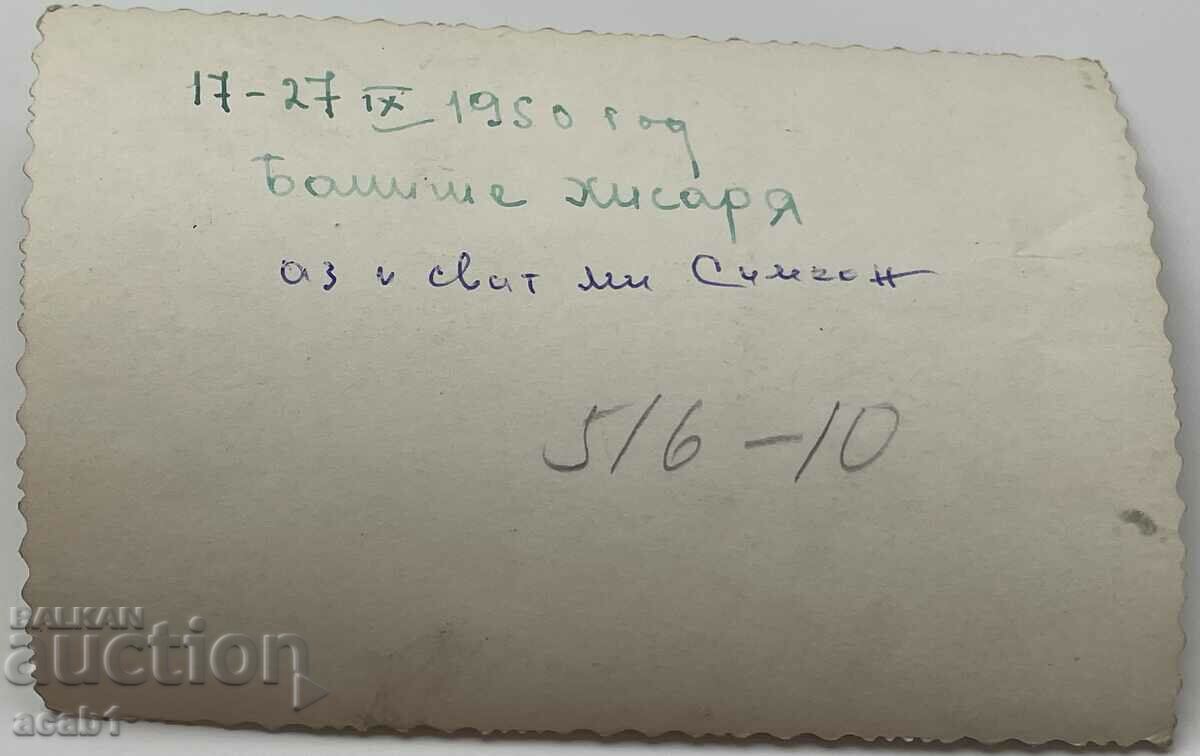 17-27 IX 1950 год
Баните хисаря
аз и сват ми Симеон
516-10
BALKAN
auction
acab1